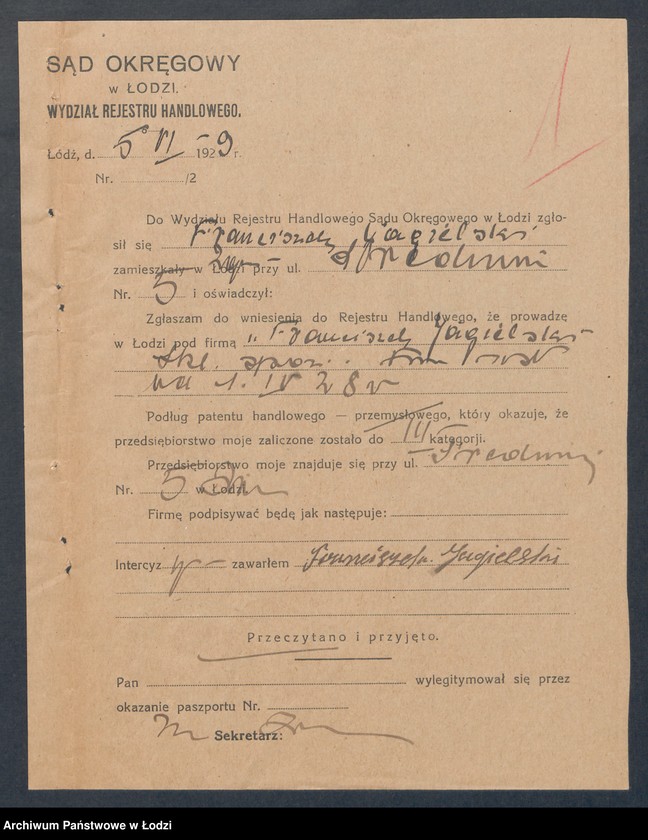 SĄD OKRĘGOWY
w ŁODZI,
WYDZIAŁ REJESTRU HANDLOWEGO,
Łódź, d. 5 VI 1929 r.
Nr. /2
Do Wydziału Rejestru Handlowego Sądu Okręgowego w Łodzi zgło-
sił się Franciszek Jagielski
zamieszkały w Łodzi przy ul. Średnini
Nr. 5 i oświadczył:
Zgłaszam do wniesienia do Rejestru Handlowego, że prowadzę
w Łodzi pod firmą „Franciszek Jagielski
Skl. spoż.
od 1. IV 28 r
Podług patentu handlowego — przemysłowego, który okazuje, że
przedsiębiorstwo moje zaliczone zostało do III kategorji.
Przedsiębiorstwo moje znajduje się przy ul.
Nr. 5 w Łodzi
Firmę podpisywać będę jak następuje:
Intercyz zawarłem Franciszek Jagielski
Przeczytano i przyjęto.
Pan wylegitymował się przez
okazanie paszportu Nr.
Sekretarz:
Archiwum Państwowe w Łodzi